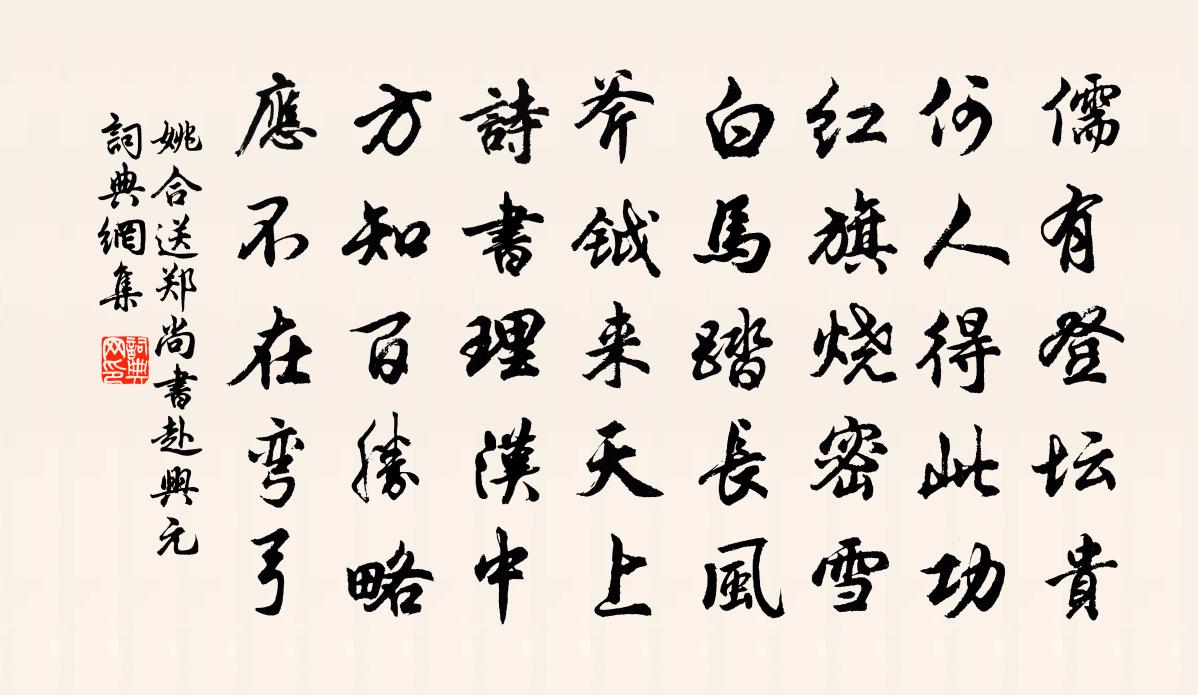 儒有登坛貴
何人得此功
红旗烧密雪
白馬踏長風
斧鉞来天上
詩書理漢中
方知百勝略
應不在弯弓
姚合送郑尚書赴興元
詞典網集
詞典網印